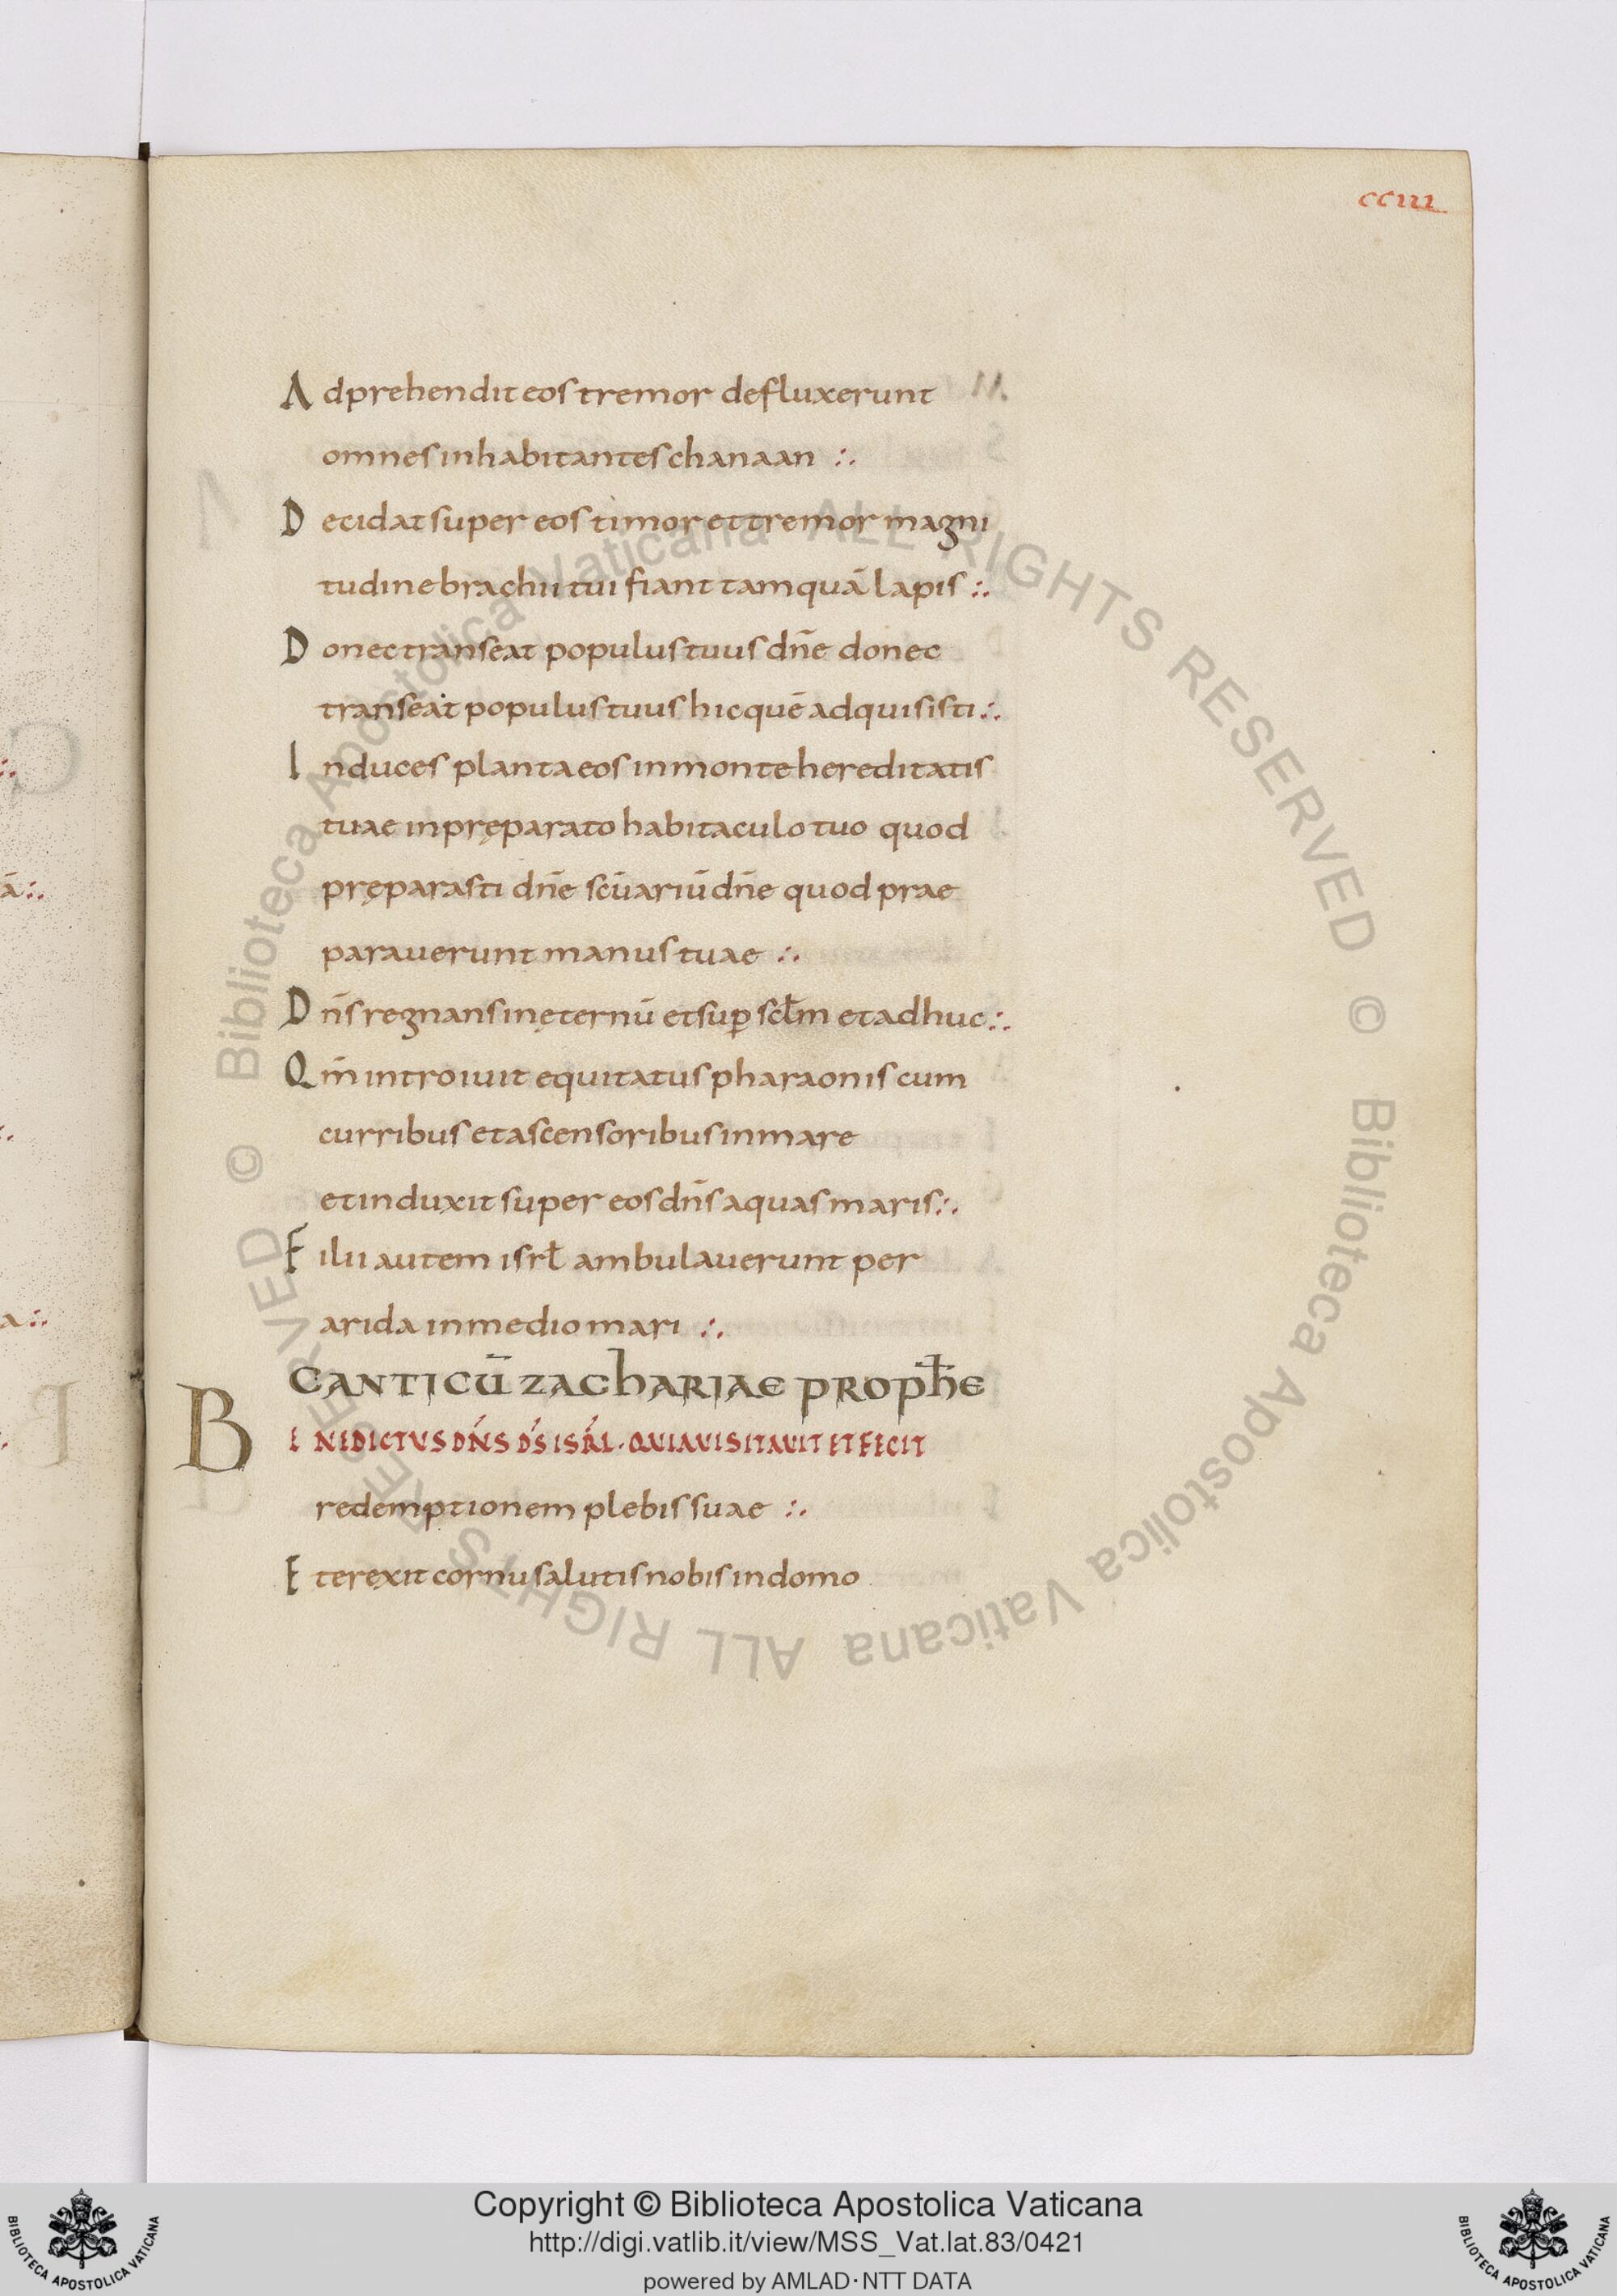 cciii
Adprehendit eos tremor defluxerunt
omnes inhabitantes chanaan :.
Decidat super eos timor et tremor magni
tudine brachii tui fiant tamquā lapis :.
Donec transeat populus tuus dn̄e donec
transeat populus tuus hic quē adquisisti :.
Induces planta eos in monte hereditatis
tuae in pręparato habitaculo tuo quod
pręparasti dn̄e sc̄uariū dn̄e quod prae
parauerunt manus tuae :.
Dn̄s regnans in ęternū et sup̱ scl̄m et adhuc :.
Qm̄ introiuit equitatus pharaonis cum
curribus et ascensoribus in mare
et induxit super eos dn̄s aquas maris :.
Filii autem isrl̄ ambulauerunt per
arida in medio mari :.
CANTICŪ ZAChARIAE PROPH̄E
BENEDICTVS DN̄S D̄S ISRL̄ · QVIA VISITAUIT ET FECIT
redemptionem plebis suae :.
Et erexit cornu salutis nobis in domo
Biblioteca Apostolica Vaticana ALL RIGHTS RESERVED ©
Biblioteca Apostolica Vaticana ALL RIGHTS RESERVED ©
Copyright © Biblioteca Apostolica Vaticana
http://digi.vatlib.it/view/MSS_Vat.lat.83/0421
powered by AMLAD·NTT DATA
BIBLIOTECA APOSTOLICA VATICANA
BIBLIOTECA APOSTOLICA VATICANA